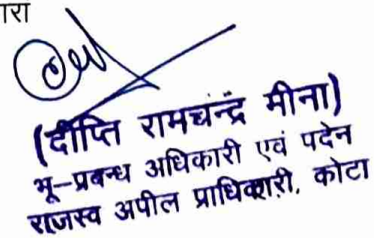 रा
(दीप्ति रामचंद्र मीना)
भू-प्रबन्ध अधिकारी एवं पदेन
राजस्व अपील प्राधिकारी, कोटा